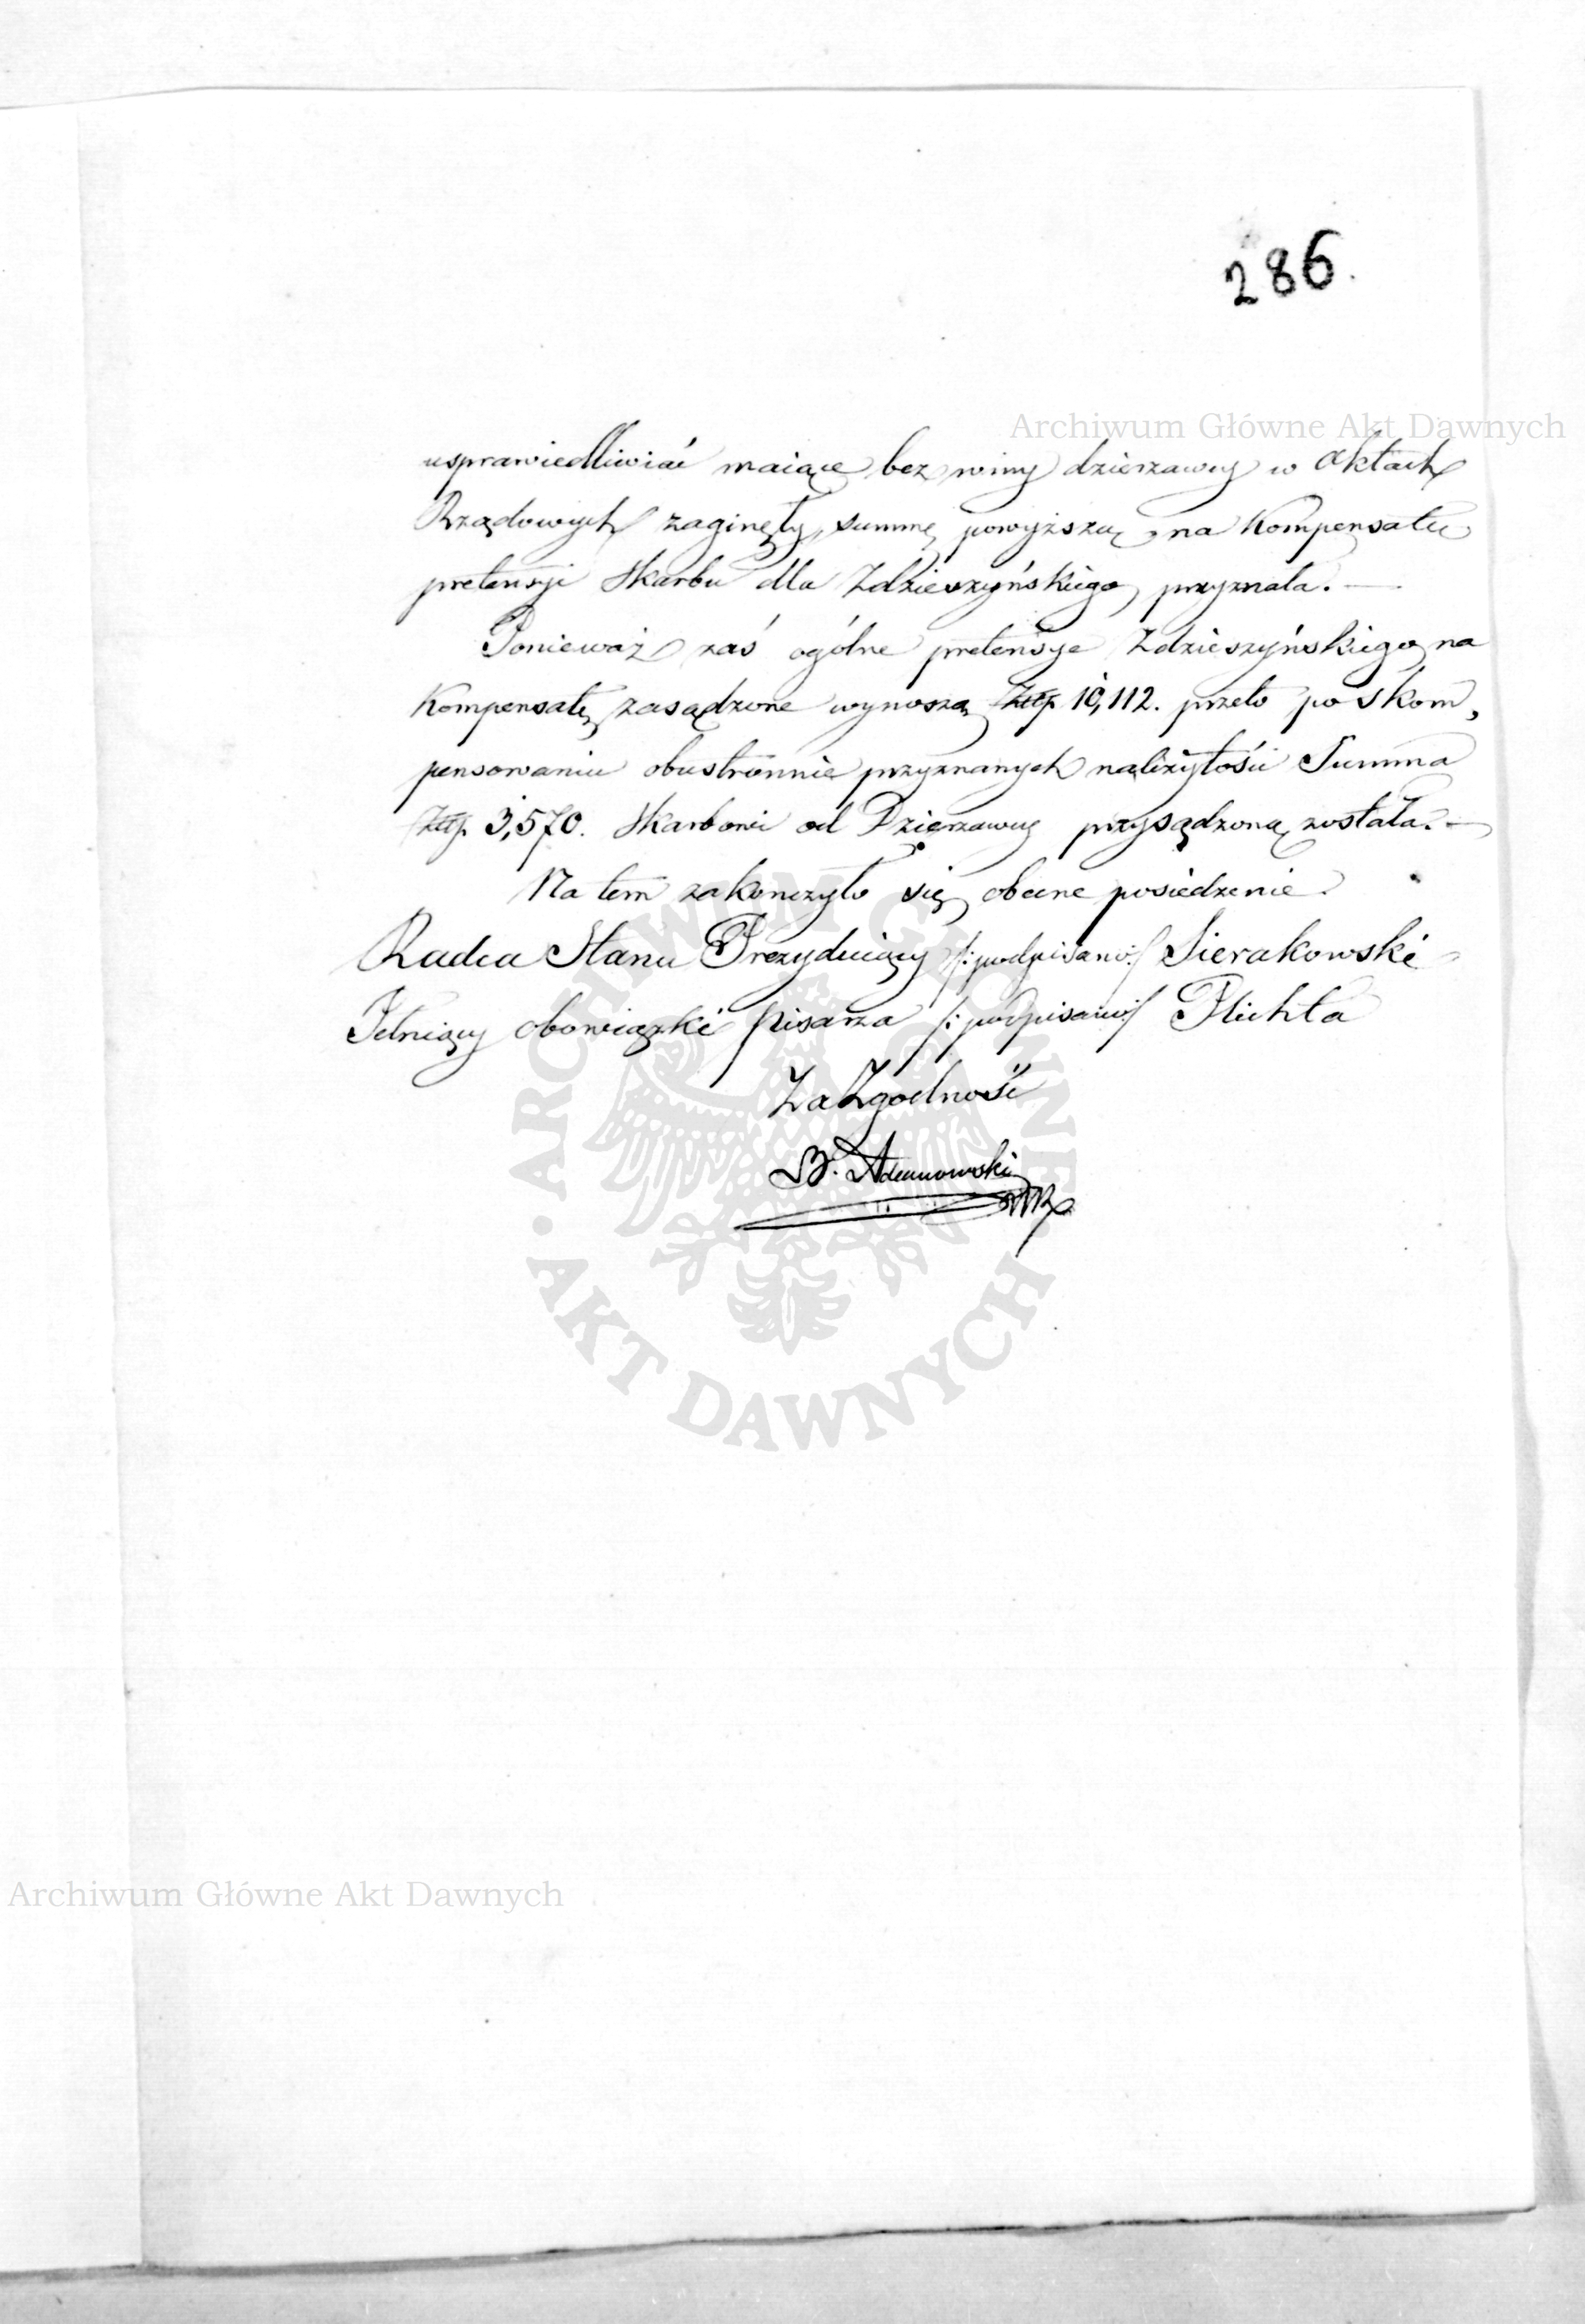 286.
Archiwum Główne Akt Dawnych
usprawiedliwiać maiące bez winy dzierzawcy w Aktach
Rządowych zaginęły, summę powyższą na Kompensatę
pretensyi Skarbu dla Zdzieszyńskiego przyznała. —
Ponieważ zaś ogólne pretensye Zdzieszyńskiego na
Kompensatę zasądzone wynoszą Złtp. 10,112. przeto po skom,
pensowaniu obustronnie przyznanych należytości Summa
Złtp. 3,570. Skarbowi od Dzierzawcy przysądzoną została. —
Na tem zakonczyło się obecne posiedzenie.
Radca Stanu Prezyduiący /: podpisano :/ Sierakowski
Pełniący obowiązki Pisarza /: podpisano :/ Plichta
Za Zgodność
Adamowski
ARCHIWUM GŁÓWNE
AKT DAWNYCH
Archiwum Główne Akt Dawnych